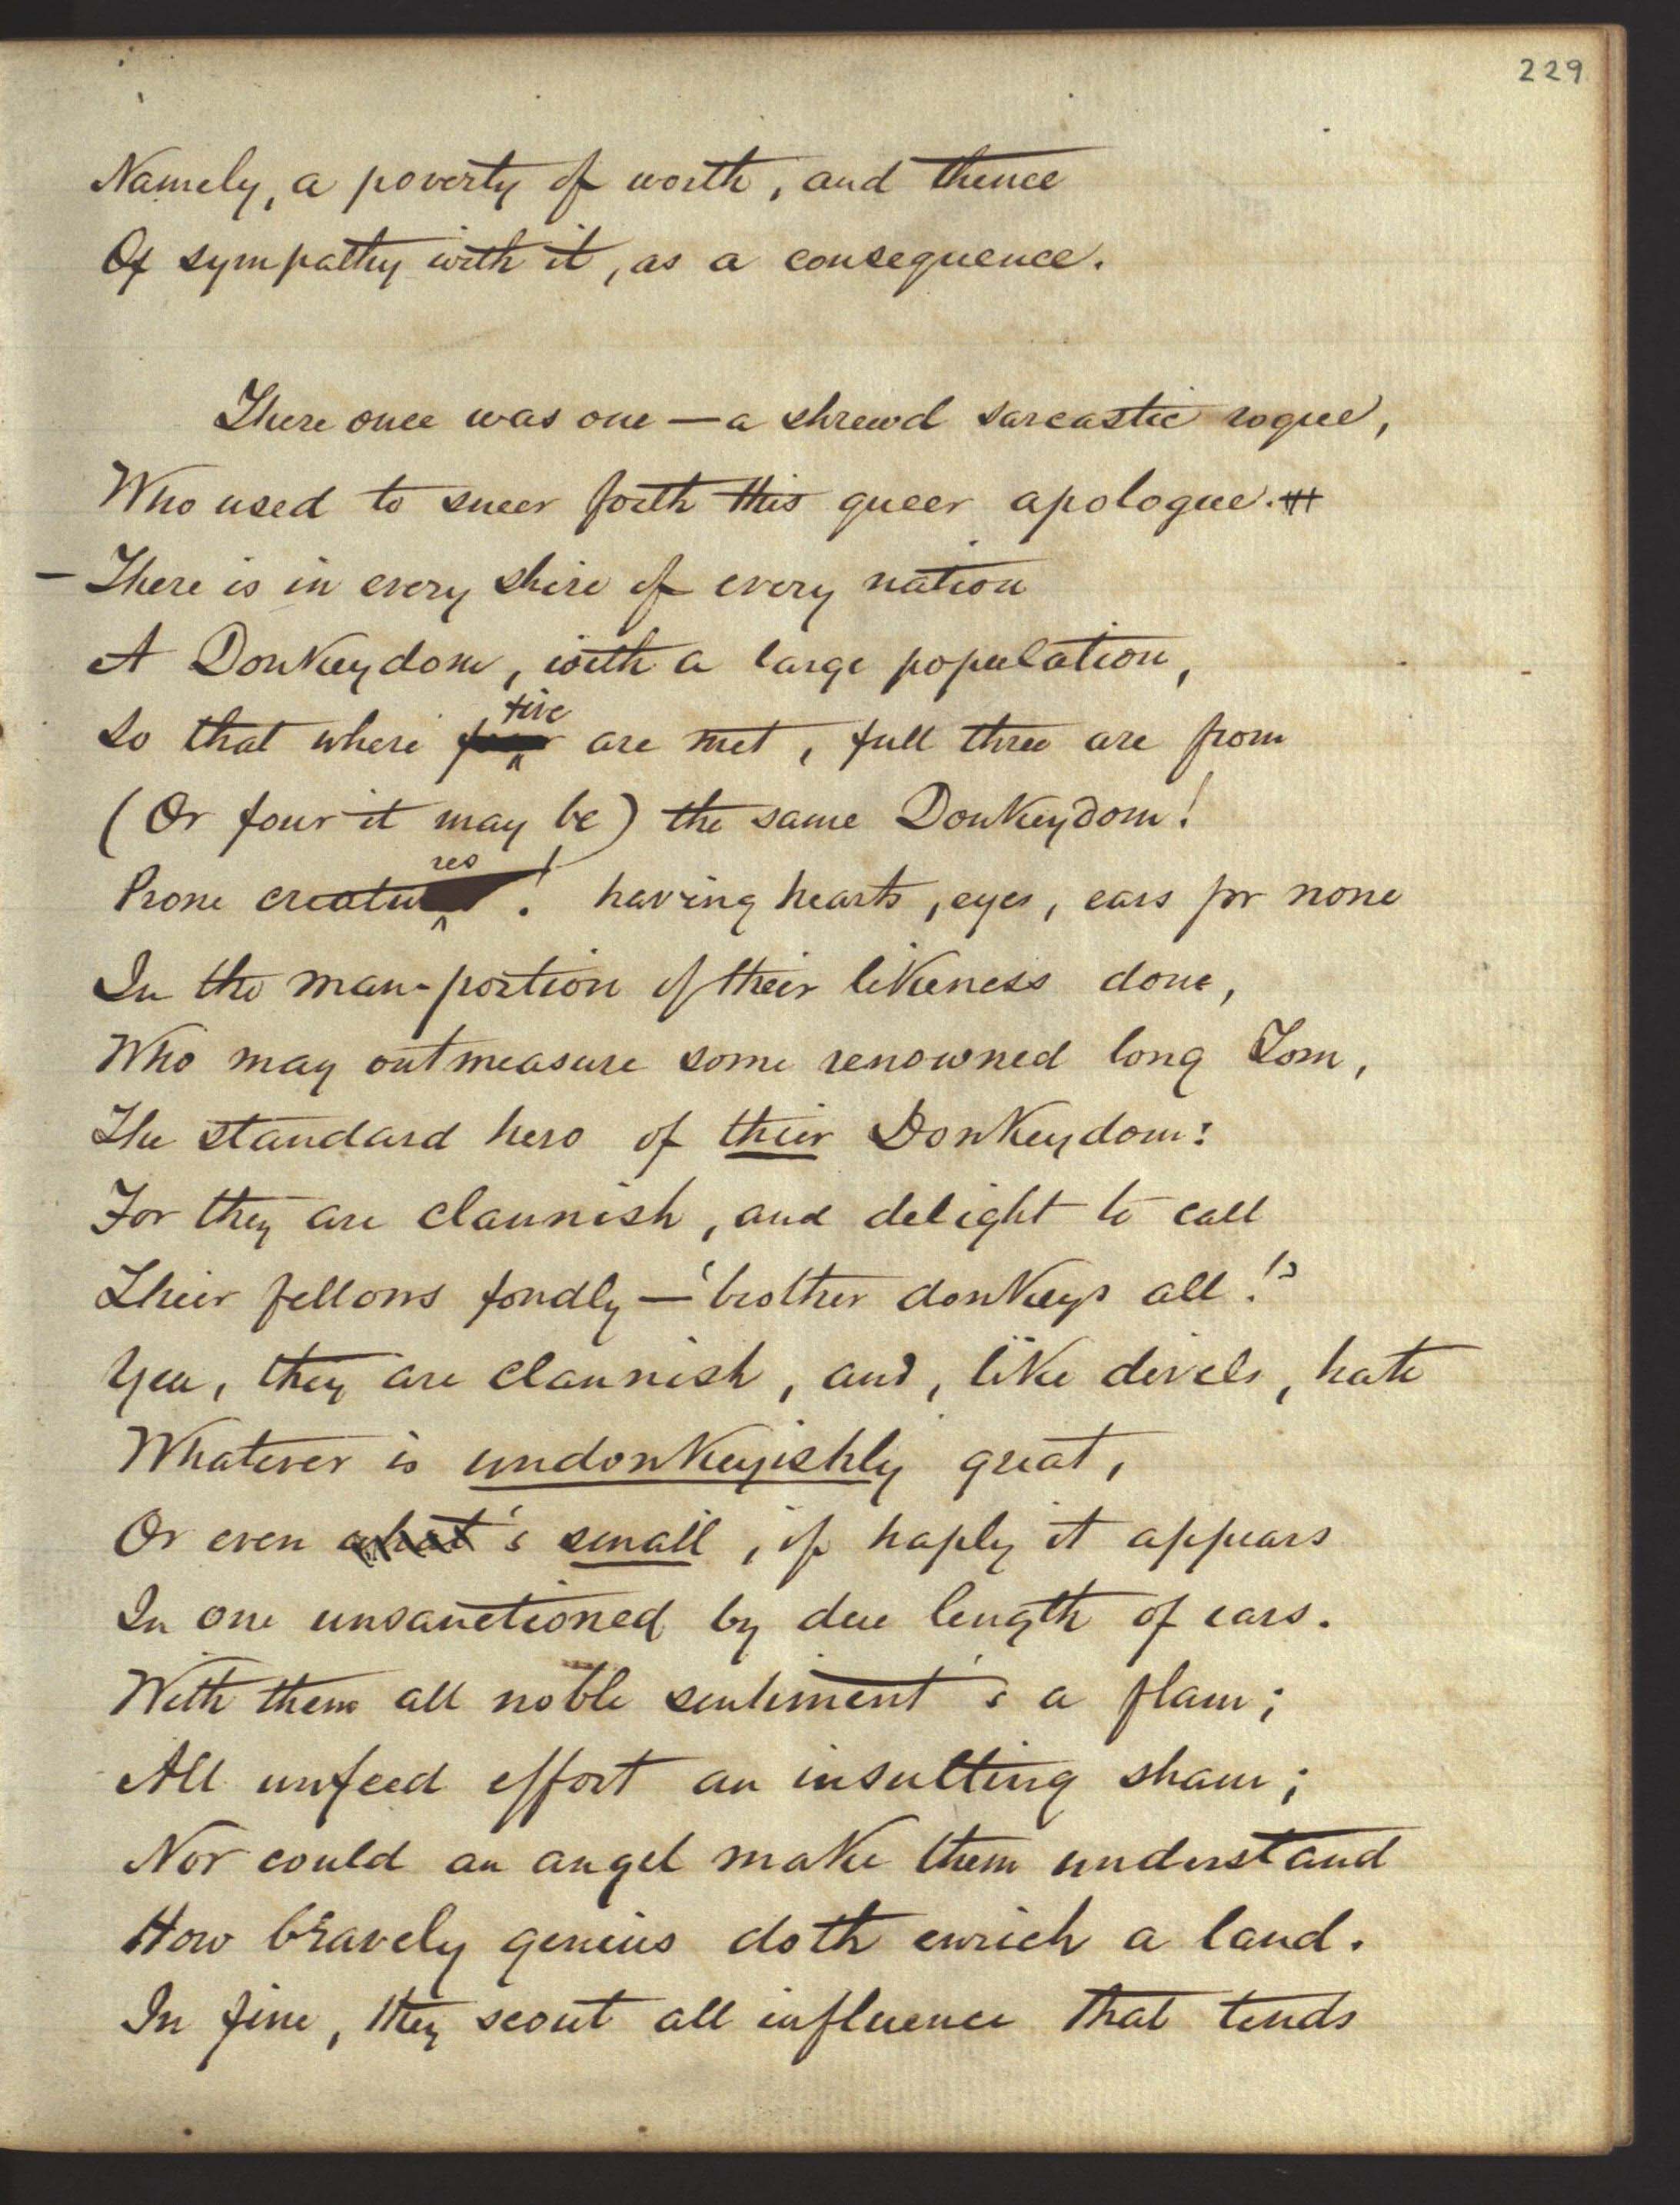 229
Namely, a poverty of worth, and thence
Of sympathy with it, as a consequence.
There once was one — a shrewd sarcastic rogue,
Who used to sneer forth this queer apologue.
— There is in every shire of every nation
A Donkeydom, with a large population,
five
So that where four are met, full three are from
(Or four it may be) the same Donkeydom!
res
Prone creatures! having hearts, eyes, ears for none
In the man-portion of their likeness done,
Who may outmeasure some renowned long Tom,
The standard hero of their Donkeydom:
For they are clannish, and delight to call
Their fellows fondly — 'brother donkeys all!'
Yea, they are clannish, and, like divels, hate
Whatever is undonkeyishly great,
Or even what's small, if haply it appears
In one unsanctioned by due length of ears.
With them all noble sentiment's a flam;
All unfeed effort an insulting sham;
Nor could an angel make them understand
How bravely genius doth enrich a land.
In fine, they scout all influence that tends